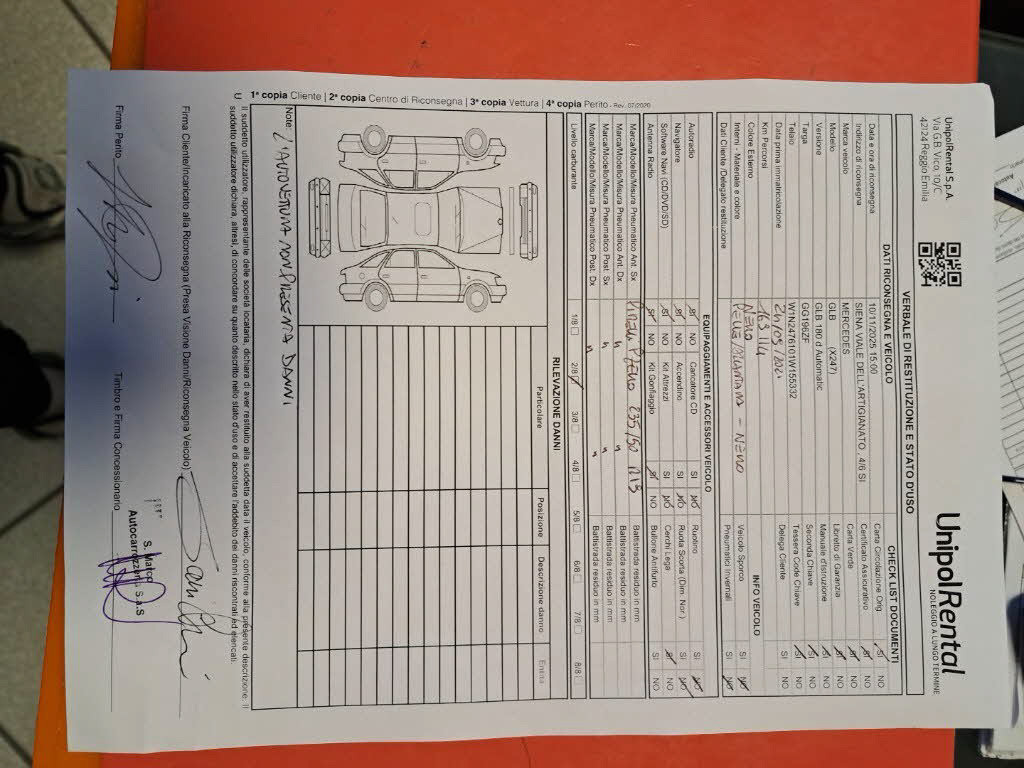 UnipolRental S.p.A.
Via G.B. Vico, 10/C
42124 Reggio Emilia
UnipolRental
NOLEGGIO A LUNGO TERMINE
VERBALE DI RESTITUZIONE E STATO D'USO
DATI RICONSEGNA E VEICOLO
CHECK LIST DOCUMENTI
Data e ora di riconsegna 10/11/2025 15:00 Carta Circolazione Orig. SI NO
Indirizzo di riconsegna SIENA VIALE DELL'ARTIGIANATO, 4/6 SI Certificato Assicurativo SI NO
Marca veicolo MERCEDES Carta Verde SI NO
Modello GLB (X247) Libretto di Garanzia SI NO
Versione GLB 180 d Automatic Manuale d'Istruzione SI NO
Targa GG196ZF Seconda Chiave SI NO
Telaio W1N2476101W155332 Tessera Code Chiave SI NO
Data prima immatricolazione 24/05/2021 Delega Cliente SI NO
Km Percorsi 163114
Colore Esterno NERO INFO VEICOLO
Interni - Materiale e colore PELLE/ALCANTARA - NERO Veicolo Sporco SI NO
Dati Cliente /Delegato restituzione Pneumatici Invernali SI NO
EQUIPAGGIAMENTI E ACCESSORI VEICOLO
Autoradio SI NO Caricatore CD SI NO Ruotino SI NO
Navigatore SI NO Accendino SI NO Ruota Scorta (Dim. Nor.) SI NO
Software Navi (CD/DVD/SD) SI NO Kit Attrezzi SI NO Cerchi Lega SI NO
Antenna Radio SI NO Kit Gonfiaggio SI NO Bullone Antifurto SI NO
Marca/Modello/Misura Pneumatico Ant. Sx PIRELLI P ZERO 235/50 R19 Battistrada residuo in mm
Marca/Modello/Misura Pneumatico Ant. Dx " " Battistrada residuo in mm
Marca/Modello/Misura Pneumatico Post. Sx " " Battistrada residuo in mm
Marca/Modello/Misura Pneumatico Post. Dx " " Battistrada residuo in mm
Livello carburante 1/8 2/8 3/8 4/8 5/8 6/8 7/8 8/8
RILEVAZIONE DANNI
Particolare Posizione Descrizione danno Entità
Note: L'AUTOVETTURA NON PRESENTA DANNI
Il suddetto utilizzatore, rappresentante delle società locataria, dichiara di aver restituito alla suddetta data il veicolo, conforme alla presente descrizione; Il
suddetto utilizzatore dichiara, altresì, di concordare su quanto descritto nello stato d'uso e di accettare l'addebito dei danni riscontrati ed elencati.
U 1ª copia Cliente | 2ª copia Centro di Riconsegna | 3ª copia Vettura | 4ª copia Perito - Rev. 07/2020
Firma Cliente/Incaricato alla Riconsegna (Presa Visione Danni/Riconsegna Veicolo)
Firma Perito
Timbro e Firma Concessionario
S. Marco
Autocarrozzeria S.a.S